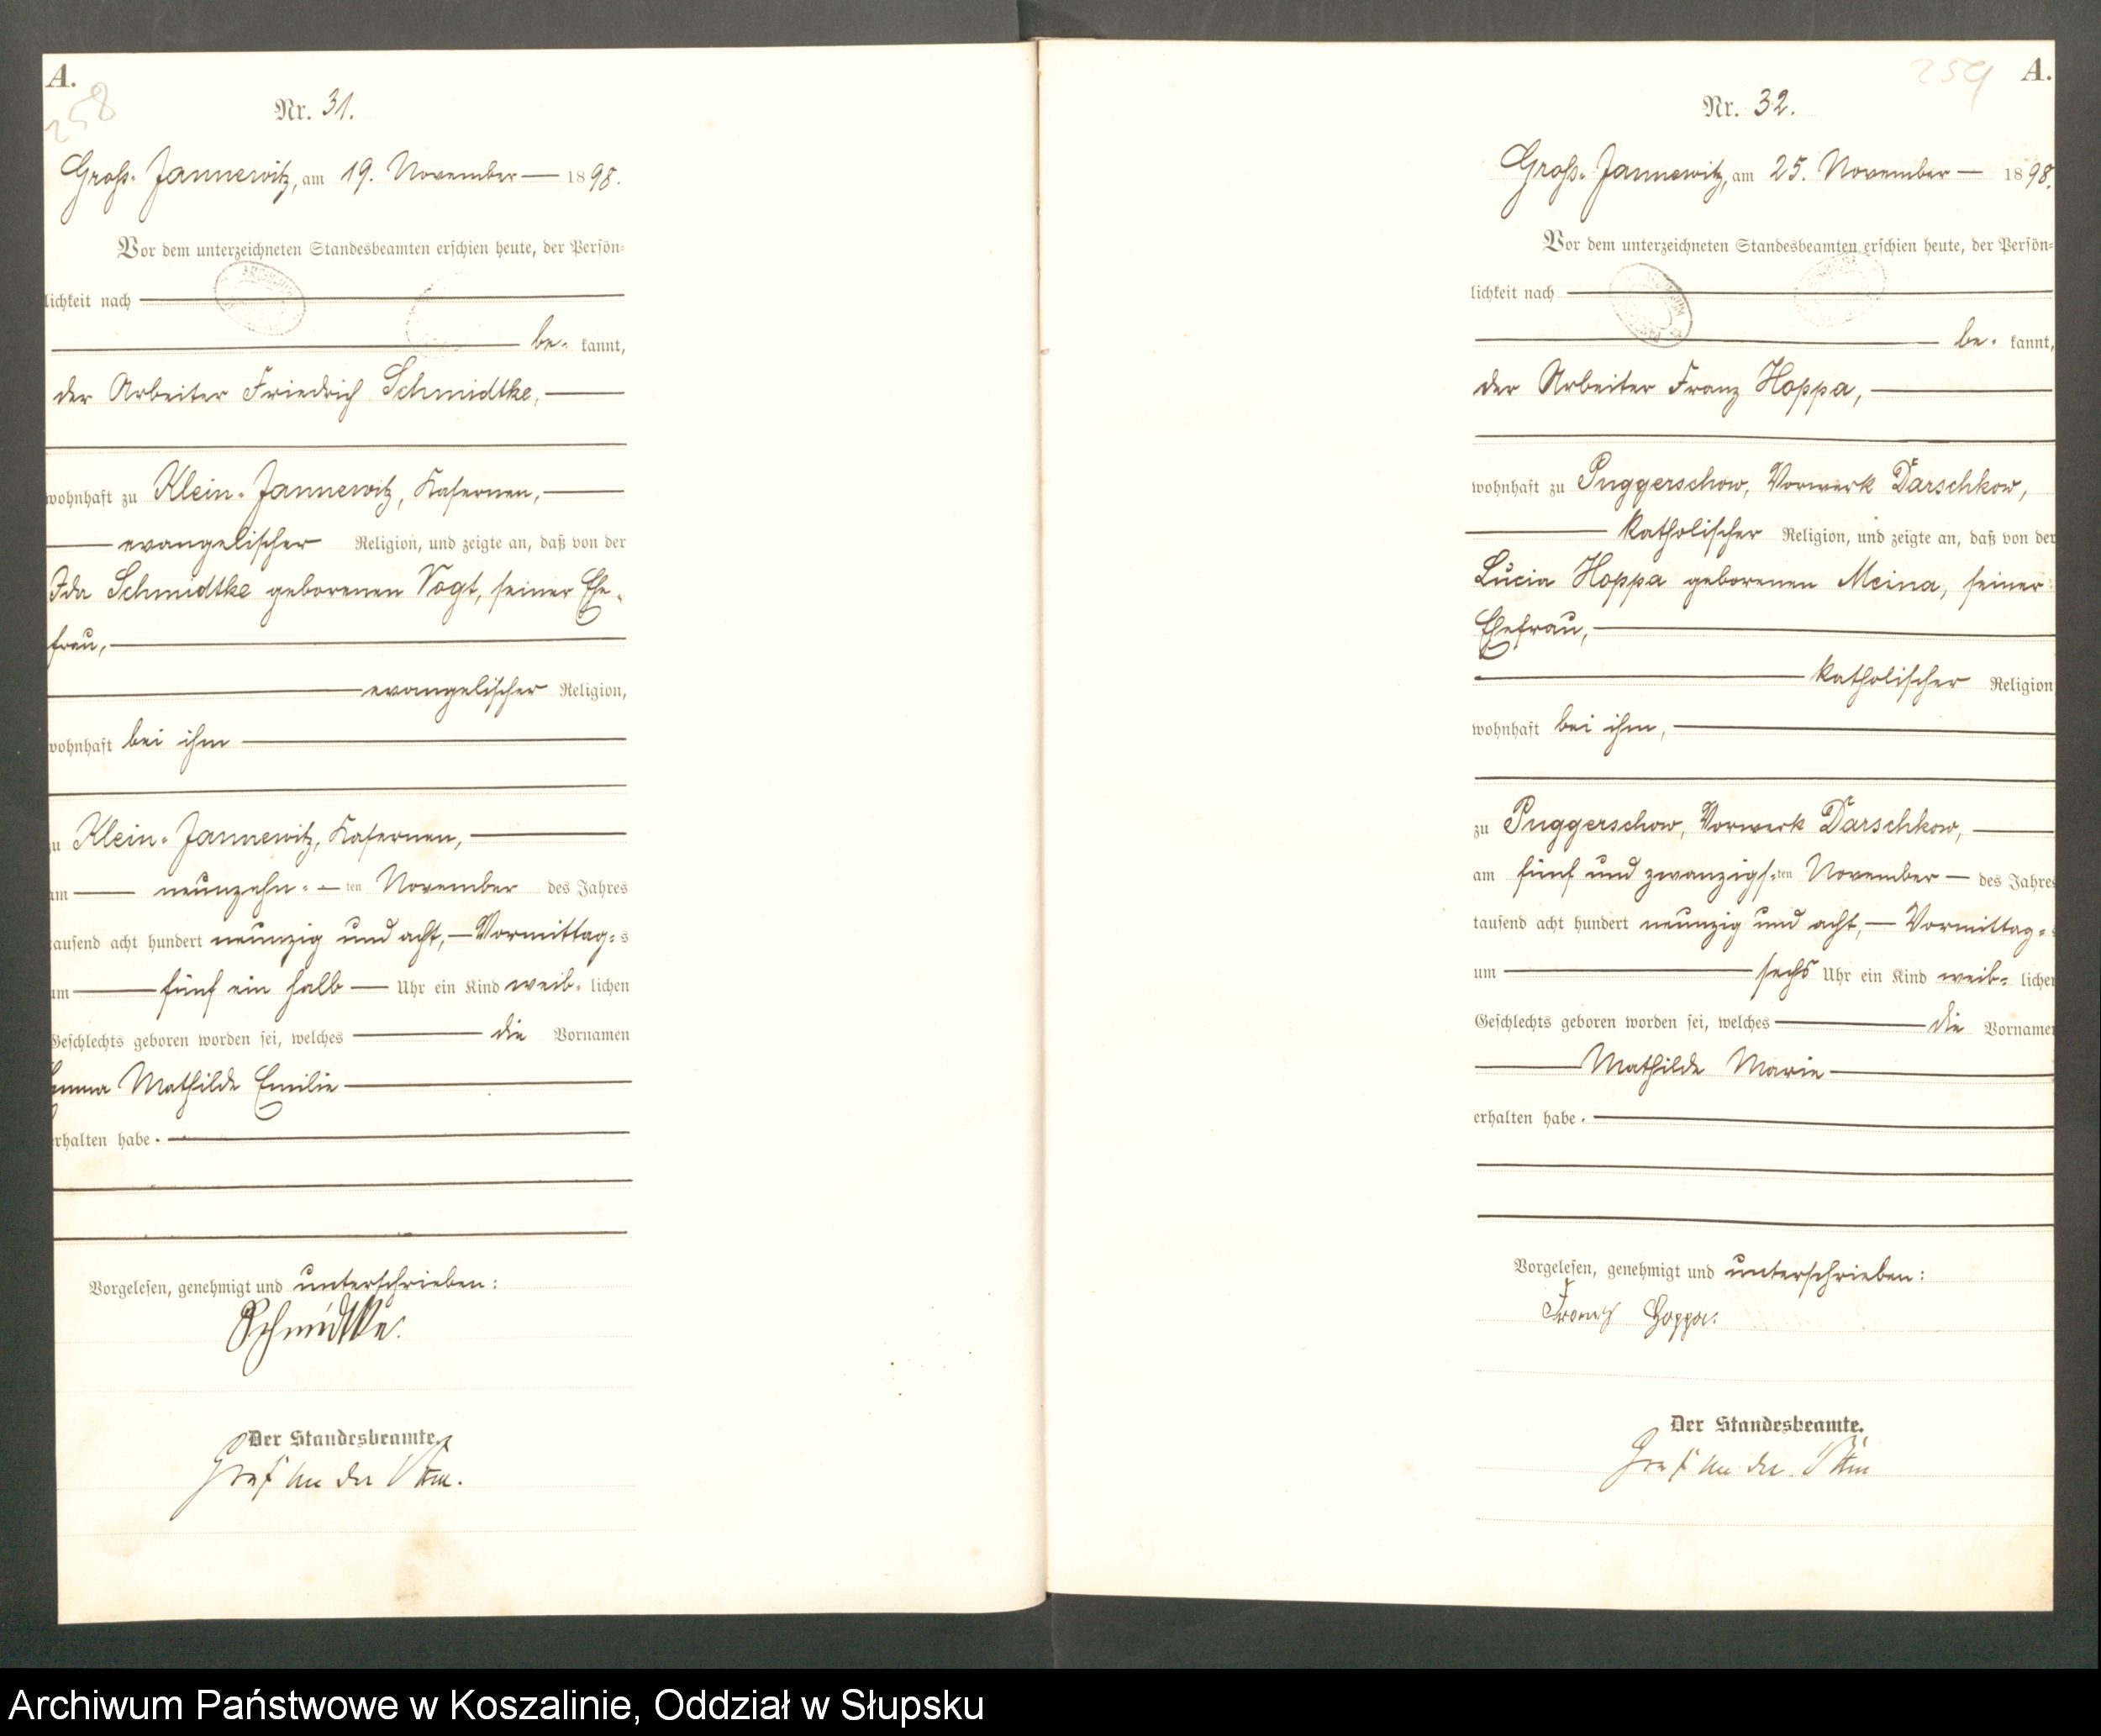 A.
258
Nr. 31.
Groß-Jannewitz, am 19. November 1898.
Vor dem unterzeichneten Standesbeamten erschien heute, der Persön-
lichkeit nach
be- kannt,
der Arbeiter Friedrich Schmidtke,
wohnhaft zu Klein-Jannewitz, Kasernen,
evangelischer Religion, und zeigte an, daß von der
Ida Schmidtke geborenen Vogt, seiner Ehe-
frau,
evangelischer Religion,
wohnhaft bei ihm
zu Klein-Jannewitz, Kasernen,
am neunzehn-ten November des Jahres
tausend acht hundert neunzig und acht, Vormittag-s
um fünf ein halb Uhr ein Kind weib-lichen
Geschlechts geboren worden sei, welches die Vornamen
Emma Mathilde Emilie
erhalten habe.
Vorgelesen, genehmigt und unterschrieben:
Schmidtke.
Der Standesbeamte.
Graf von der
A.
259
Nr. 32.
Groß-Jannewitz, am 25. November 1898.
Vor dem unterzeichneten Standesbeamten erschien heute, der Persön-
lichkeit nach
be- kannt,
der Arbeiter Franz Hoppa,
wohnhaft zu Puggerschow, Vorwerk Darschkow,
katholischer Religion, und zeigte an, daß von der
Lucia Hoppa geborenen Meina, seiner
Ehefrau,
katholischer Religion
wohnhaft bei ihm,
zu Puggerschow, Vorwerk Darschkow,
am fünf und zwanzigs-ten November des Jahres
tausend acht hundert neunzig und acht, Vormittag-s
um sechs Uhr ein Kind weib-lichen
Geschlechts geboren worden sei, welches die Vornamen
Mathilde Marie
erhalten habe.
Vorgelesen, genehmigt und unterschrieben:
Franz Hoppa.
Der Standesbeamte.
Graf von der
Archiwum Państwowe w Koszalinie, Oddział w Słupsku